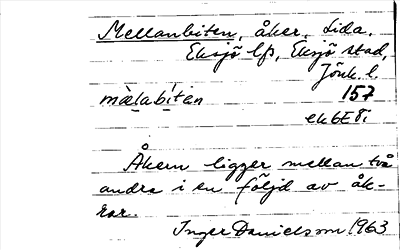 Mellanbiten, åker, Lida,
Eksjö lfs, Eksjö stad,
Jönk. l.
mælabitən 157
ek 6E 8i
Åkern ligger mellan två
andra i en följd av åk-
rar.
Inger Danielsson 1963